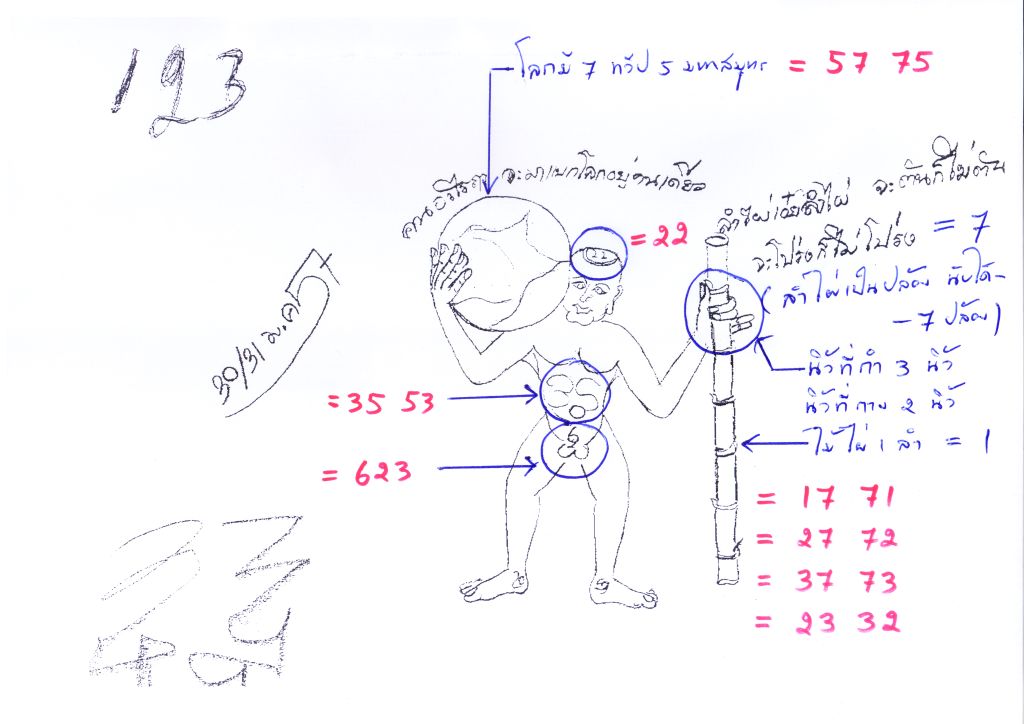 193
โลกมี 7 ทวีป 5 มหาสมุทร = 57 75
จะมาแบกโลกอยู่คนเดียว
= 22
ลำไผ่ ลำไผ่ จะตันก็ไม่ตัน
จะโปร่งก็ไม่โปร่ง = 7
(ลำไผ่เป็นปล้อง นับได้-
-7 ปล้อง)
30/31 ม.ค.
นิ้วที่กำ 3 นิ้ว
นิ้วที่กาง 2 นิ้ว
ไม้ไผ่ 1 ลำ = 1
= 35 53
= 623
= 17 71
= 27 72
= 37 73
= 23 32